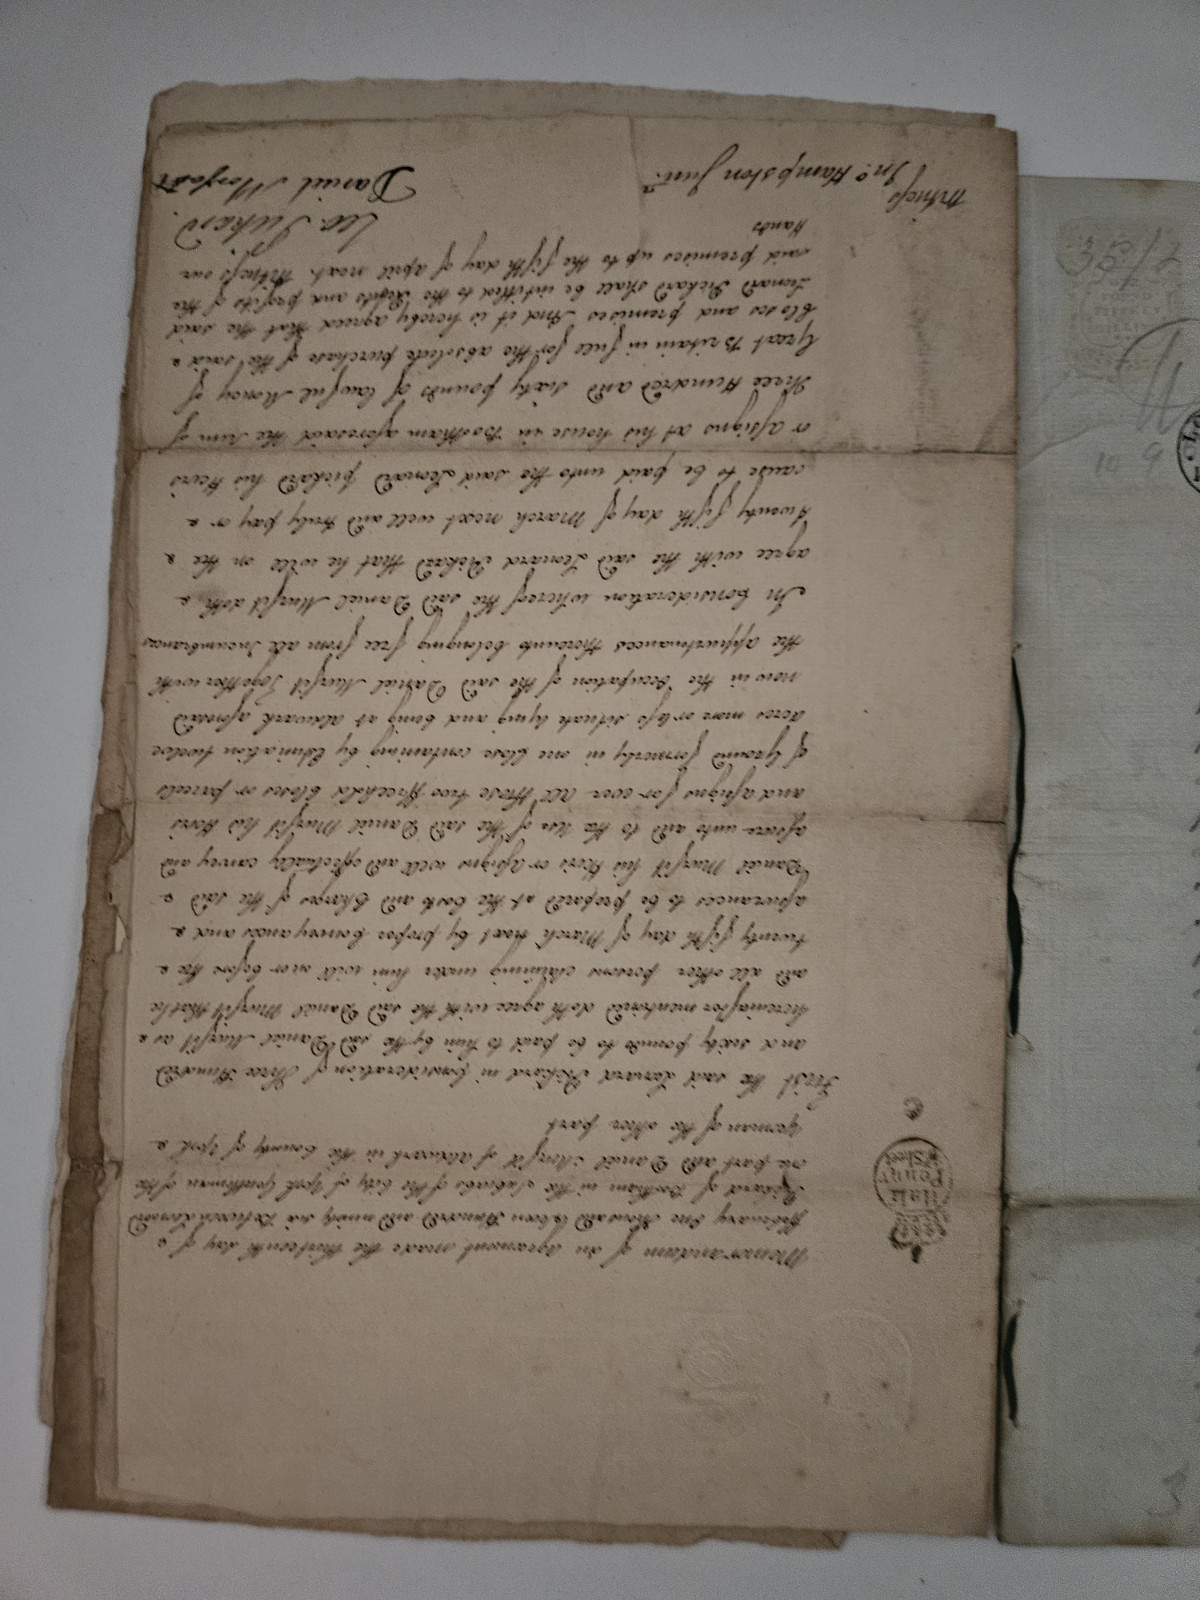 Memorandum of an Agreement made the thirteenth day of
February One thousand Seven Hundred and ninety six Between Leonard
Pickard of Bootham in the Suburbs of the City of York Gentleman of the
one part and Daniel Murfit of Aldwark in the County of York
Yeoman of the other part
First the said Leonard Pickard in Consideration of Three Hundred
and sixty pounds to be paid to him by the said Daniel Murfit as
hereinafter mentioned doth agree with the said Daniel Murfit that he
and all other persons claiming under him will on or before the
twenty fifth day of March next by proper Conveyances and
assurances to be prepared at the Costs and Charges of the said
Daniel Murfit his Heirs or Assigns well and effectually convey and
assure unto and to the Use of the said Daniel Murfit his Heirs
and assigns for ever All those two Freehold Closes or parcels
of Ground formerly in one Close containing by Estimation twelve
acres more or less situate lying and being at Aldwark aforesaid
now in the Occupation of the said Daniel Murfit Together with
the appurtenances thereunto belonging free from all Incumbrances
In Consideration whereof the said Daniel Murfit doth
agree with the said Leonard Pickard that he will on the
twenty fifth day of March next well and truly pay or
cause to be paid unto the said Leonard Pickard his Heirs
or Assigns at his house in Bootham aforesaid the sum of
Three Hundred and sixty pounds of lawful Money of
Great Britain in full for the absolute purchase of the said
Closes and premises And it is hereby agreed that the said
Leonard Pickard shall be intitled to the Rents and profits of the
said premises up to the fifth day of April next. Witness our
Hands
Leo. Pickard.
Witness
Jno. Hampston Junr.
Daniel
Half
Penny
Sheet